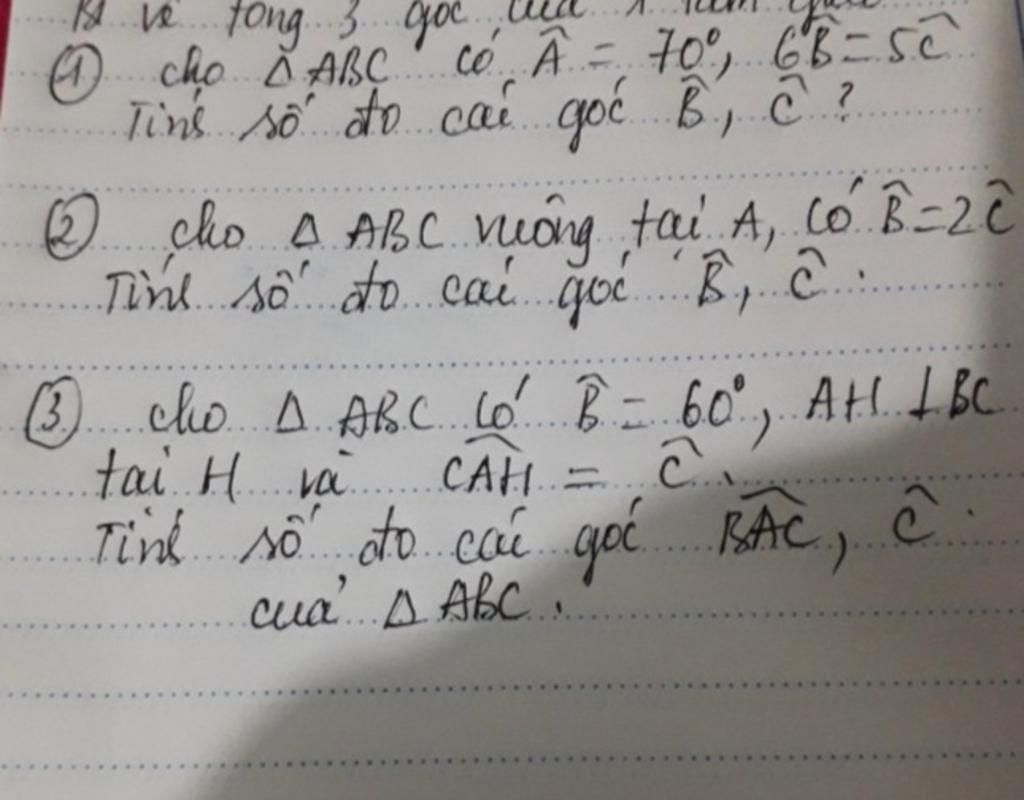 về tổng 3 góc của 1 tam giác
① cho Δ ABC có Â = 70°, 6B̂ = 5Ĉ
Tính số đo các góc B̂, Ĉ ?
② cho Δ ABC vuông tại A, có B̂ = 2Ĉ
Tính số đo các góc B̂, Ĉ .
③ cho Δ ABC có B̂ = 60°, AH ⊥ BC
tại H và \widehat{CAH} = Ĉ .
Tính số đo các góc \widehat{BAC}, Ĉ .
của Δ ABC .